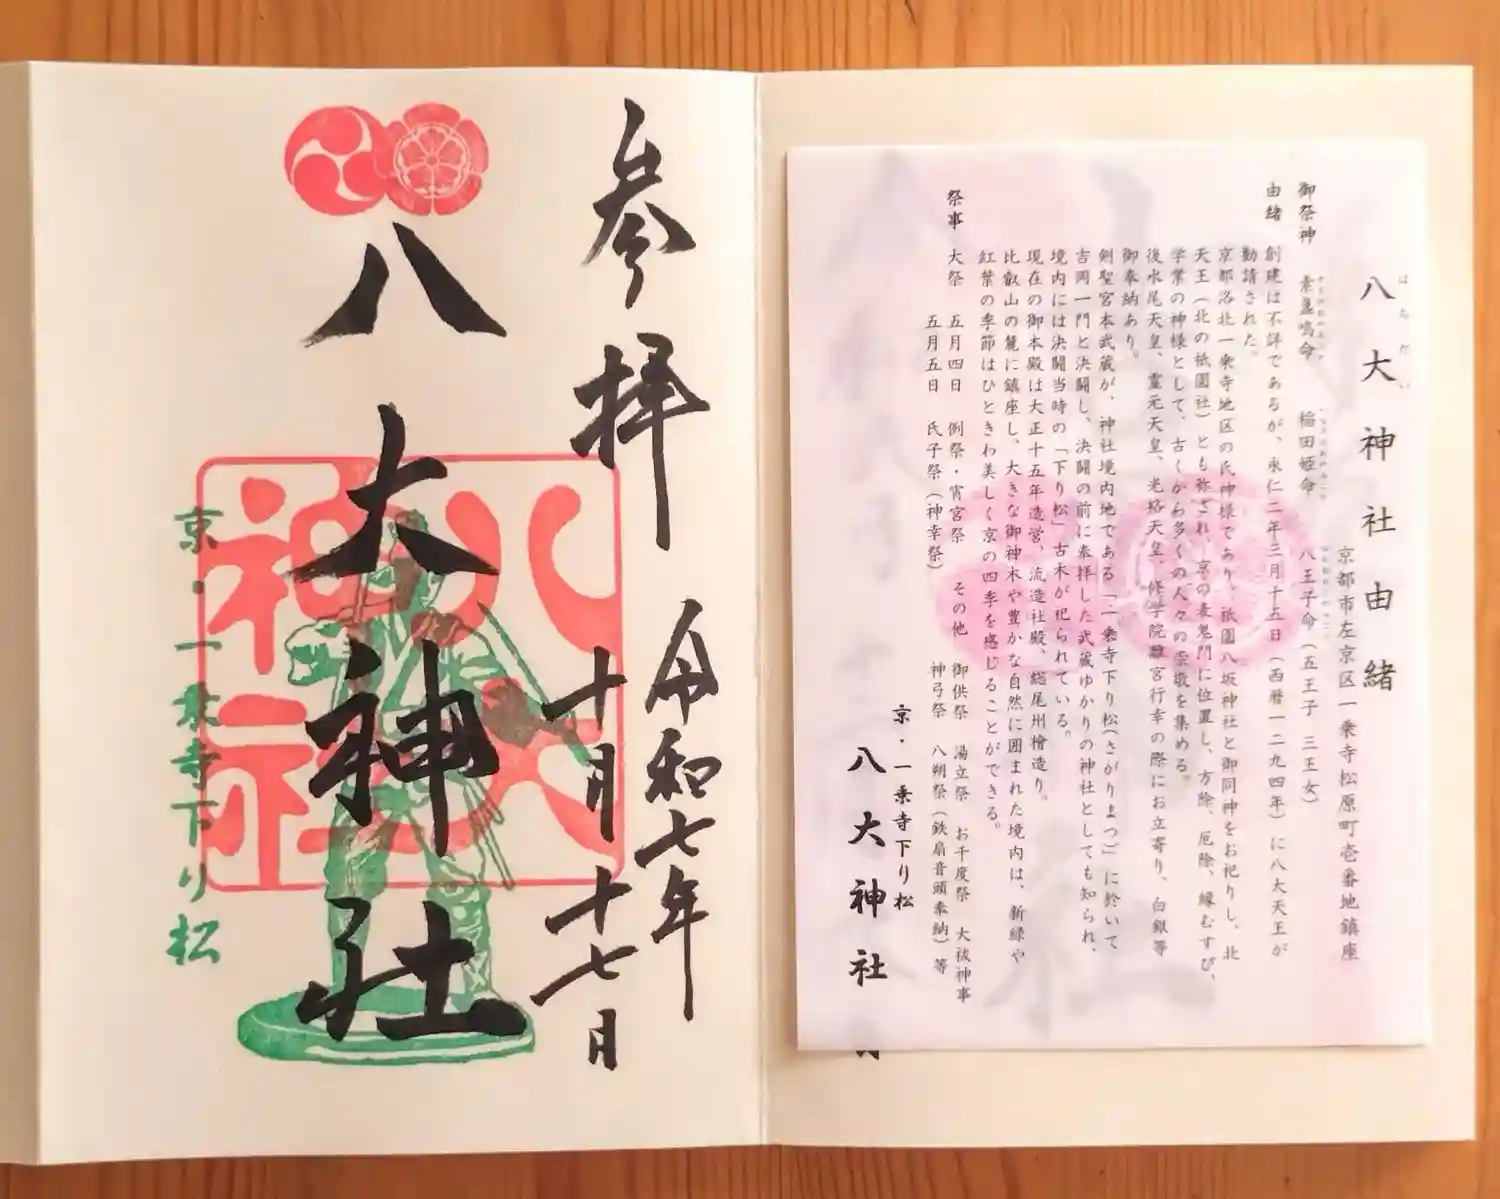 八大神社由緒
はちだい
京都市左京区一乗寺松原町壱番地鎮座
御祭神 素盞嗚命 稲田姫命 八王子命(五王子 三王女)
由緒 創建は不詳であるが、永仁二年三月十五日(西暦一二九四年)に八大天王が
勧請された。
京都洛北一乗寺地区の氏神様であり、祇園八坂神社と御同神をお祀りし、北
天王(北の祇園社)とも称され、京の表鬼門に位置し、方除、厄除、縁むすび、
学業の神様として、古くから多くの人々の崇敬を集める。
後水尾天皇、霊元天皇、光格天皇、修学院離宮行幸の際にお立寄り、白銀等
御奉納あり。
剣聖宮本武蔵が、神社境内地である「一乗寺下り松(さがりまつ)」に於いて
吉岡一門と決闘し、決闘の前に参拝した武蔵ゆかりの神社としても知られ、
境内には決闘当時の「下り松」古木が祀られている。
現在の御本殿は大正十五年造営、流造社殿、総尾州檜造り。
比叡山の麓に鎮座し、大きな御神木や豊かな自然に囲まれた境内は、新緑や
紅葉の季節はひときわ美しく京の四季を感じることができる。
祭事 大祭 五月四日 例祭・宵宮祭 その他 御供祭 湯立祭 お千度祭 大祓神事
五月五日 氏子祭(神幸祭) 神弓祭 八朔祭(鉄扇音頭奉納)等
京・一乗寺下り松
八大神社
参拝
令和七年
十月十七日
八大神社
八大
神社
京・一乗寺下り松